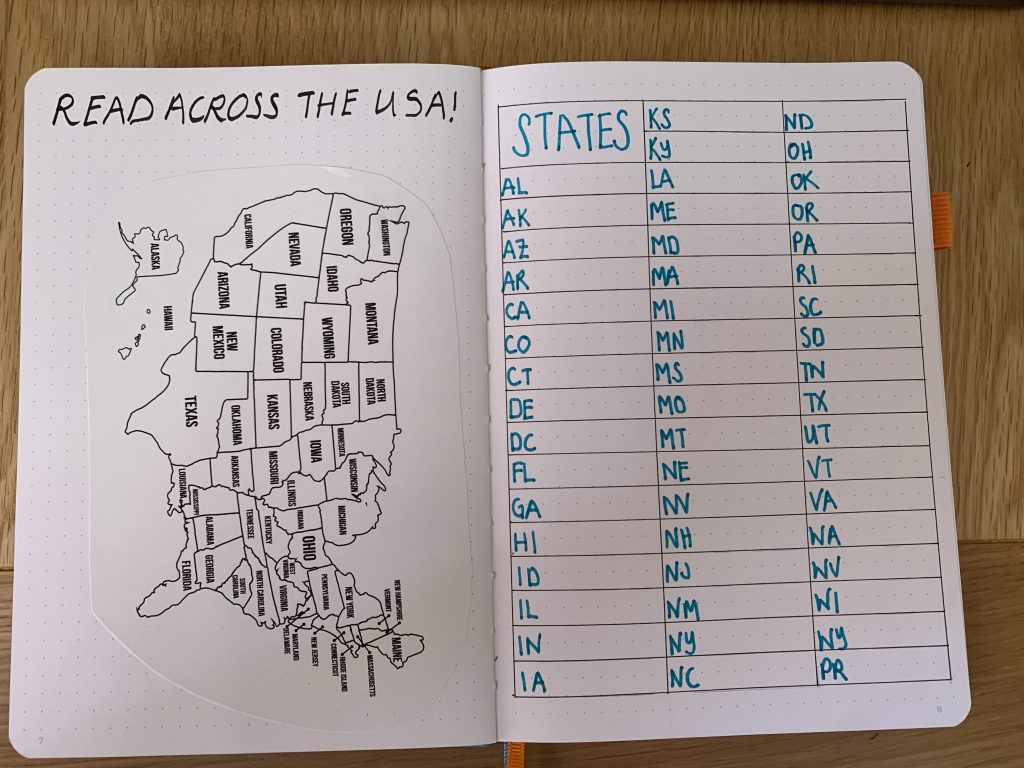 READ ACROSS THE USA!
WASHINGTON
OREGON
CALIFORNIA
NEVADA
IDAHO
MONTANA
WYOMING
UTAH
ARIZONA
COLORADO
NEW
MEXICO
NORTH
DAKOTA
SOUTH
DAKOTA
NEBRASKA
KANSAS
OKLAHOMA
TEXAS
MINNESOTA
IOWA
MISSOURI
ARKANSAS
LOUISIANA
WISCONSIN
ILLINOIS
MISSISSIPPI
MICHIGAN
INDIANA
KENTUCKY
TENNESSEE
ALABAMA
OHIO
WEST
VIRGINIA
VIRGINIA
NORTH CAROLINA
SOUTH
CAROLINA
GEORGIA
FLORIDA
PENNSYLVANIA
NEW YORK
NEW HAMPSHIRE
VERMONT
MAINE
MASSACHUSETTS
RHODE ISLAND
CONNECTICUT
NEW JERSEY
MARYLAND
DELAWARE
ALASKA
HAWAII
7
STATES
AL
AK
AZ
AR
CA
CO
CT
DE
DC
FL
GA
HI
ID
IL
IN
IA
KS
KY
LA
ME
MD
MA
MI
MN
MS
MO
MT
NE
NV
NH
NJ
NM
NY
NC
ND
OH
OK
OR
PA
RI
SC
SD
TN
TX
UT
VT
VA
WA
WV
WI
WY
PR
8